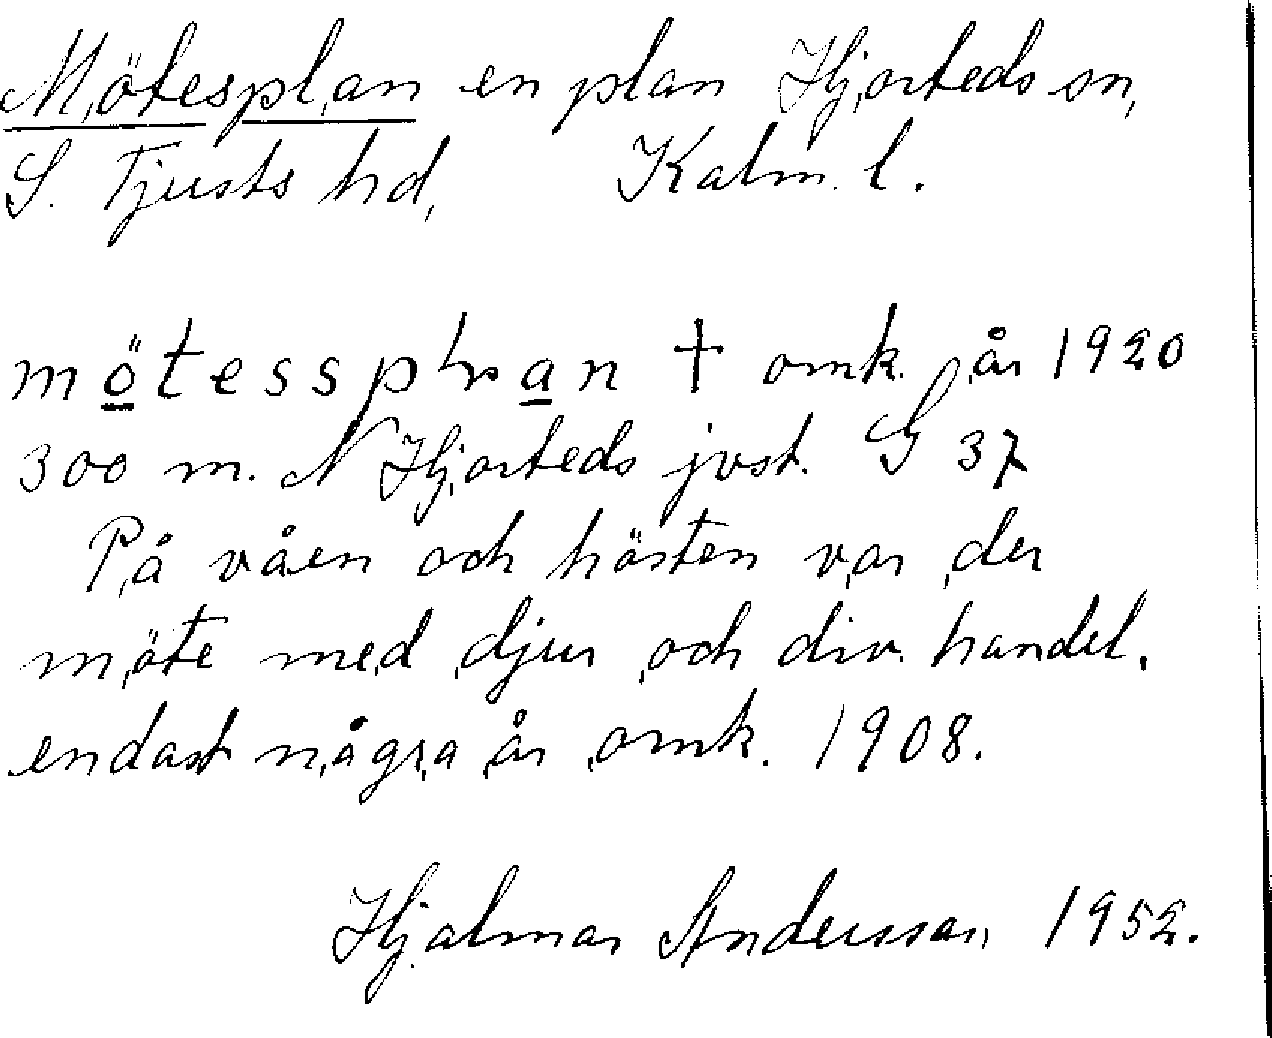 Mötesplan en plan Hjorteds sn,
S. Tjusts hd, Kalm. l.
mötessplan † omk. år 1920
300 m. N Hjorteds jvst. G 37
På våen och hösten var der
möte med djur och div. handel.
endast några år omk. 1908.
Hjalmar Andersson 1952.